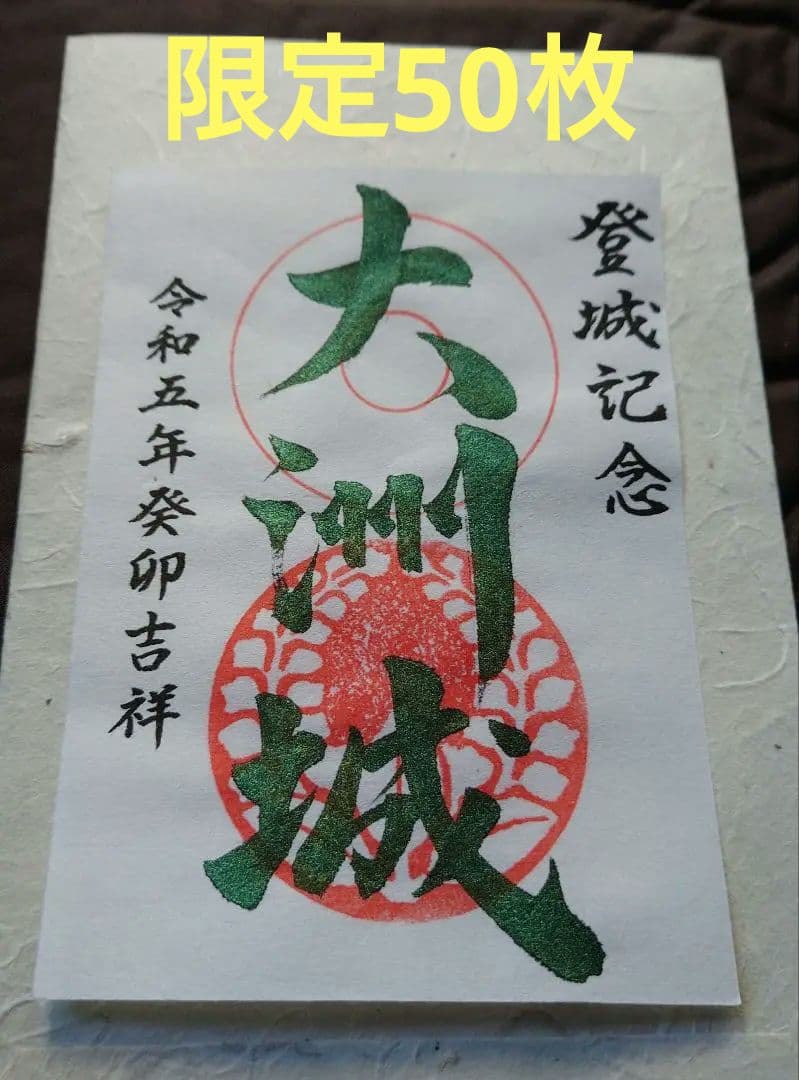 限定50枚
登城記念
大洲城
令和五年癸卯吉祥